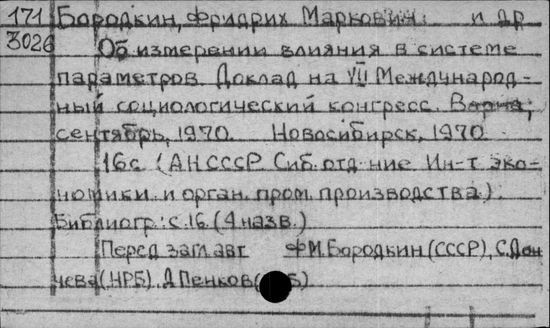 171 Бородкин, Фридрих Маркович. и др
3026 Об измерении влияния в системе
параметров. Доклад на VII Международ-
ный социологический конгресс. Варна,
сентябрь, 1970. Новосибирск, 1970.
16с. (АН СССР. Сиб. отд-ние. Ин-т эко-
номики и орган. пром. производства).
Библиогр.: с. 16. (4 назв.)
Перед загл. авт Ф.М. Бородкин (СССР), С. Дон
чева (НРБ), Д Пенков (